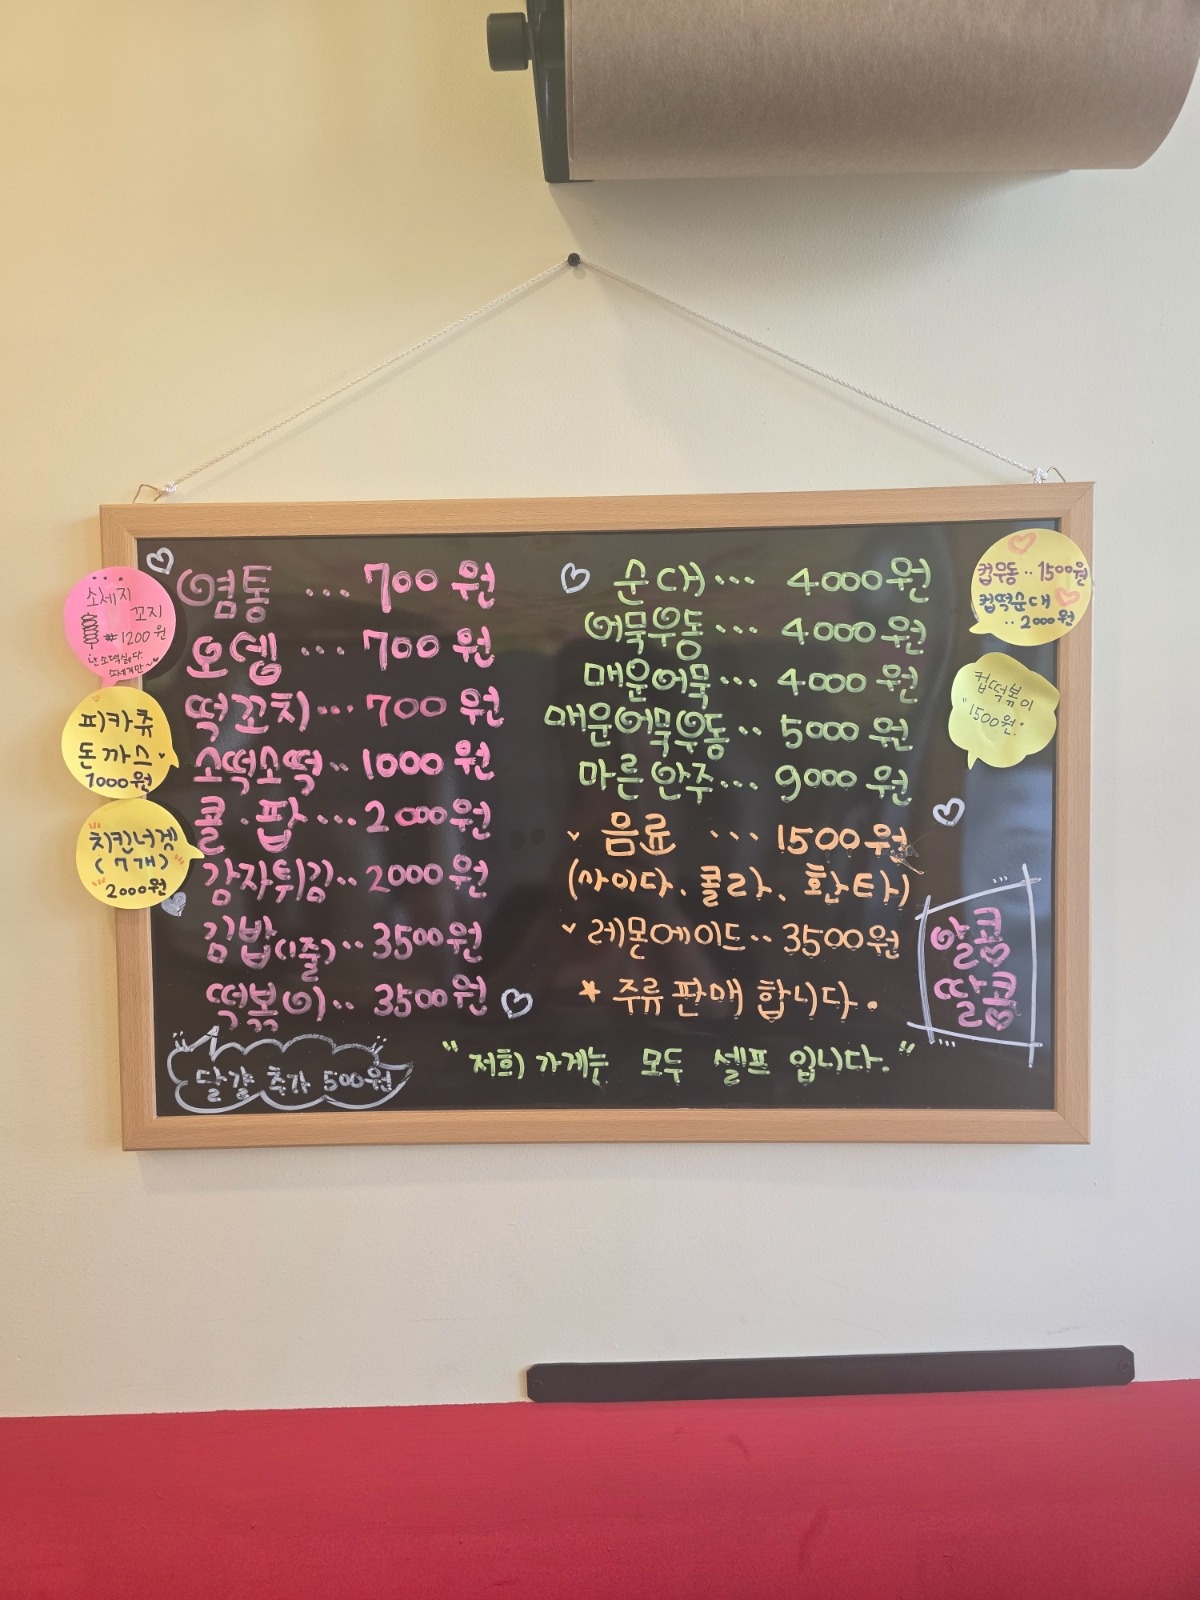 염통 ... 700원
오뎅 ... 700원
떡꼬치 ... 700원
소떡소떡 .. 1000원
콜.팝 ... 2000원
감자튀김 .. 2000원
김밥(1줄) .. 3500원
떡볶이 .. 3500원
달걀 추가 500원
순대 ... 4000원
어묵우동 ... 4000원
매운어묵 ... 4000원
매운어묵우동 .. 5000원
마른안주 ... 9000원
음료 ... 1500원
(사이다. 콜라. 환타)
레몬에이드 .. 3500원
* 주류 판매 합니다.
"저희 가게는 모두 셀프 입니다."
알콩
딸콩
소세지
꼬지
#1200원
소세지만~
피카츄
돈까스.
1000원
치킨너겟
(7개)
2000원
컵우동 .. 1500원
컵떡순대
.. 2000원
컵떡볶이
1500원.